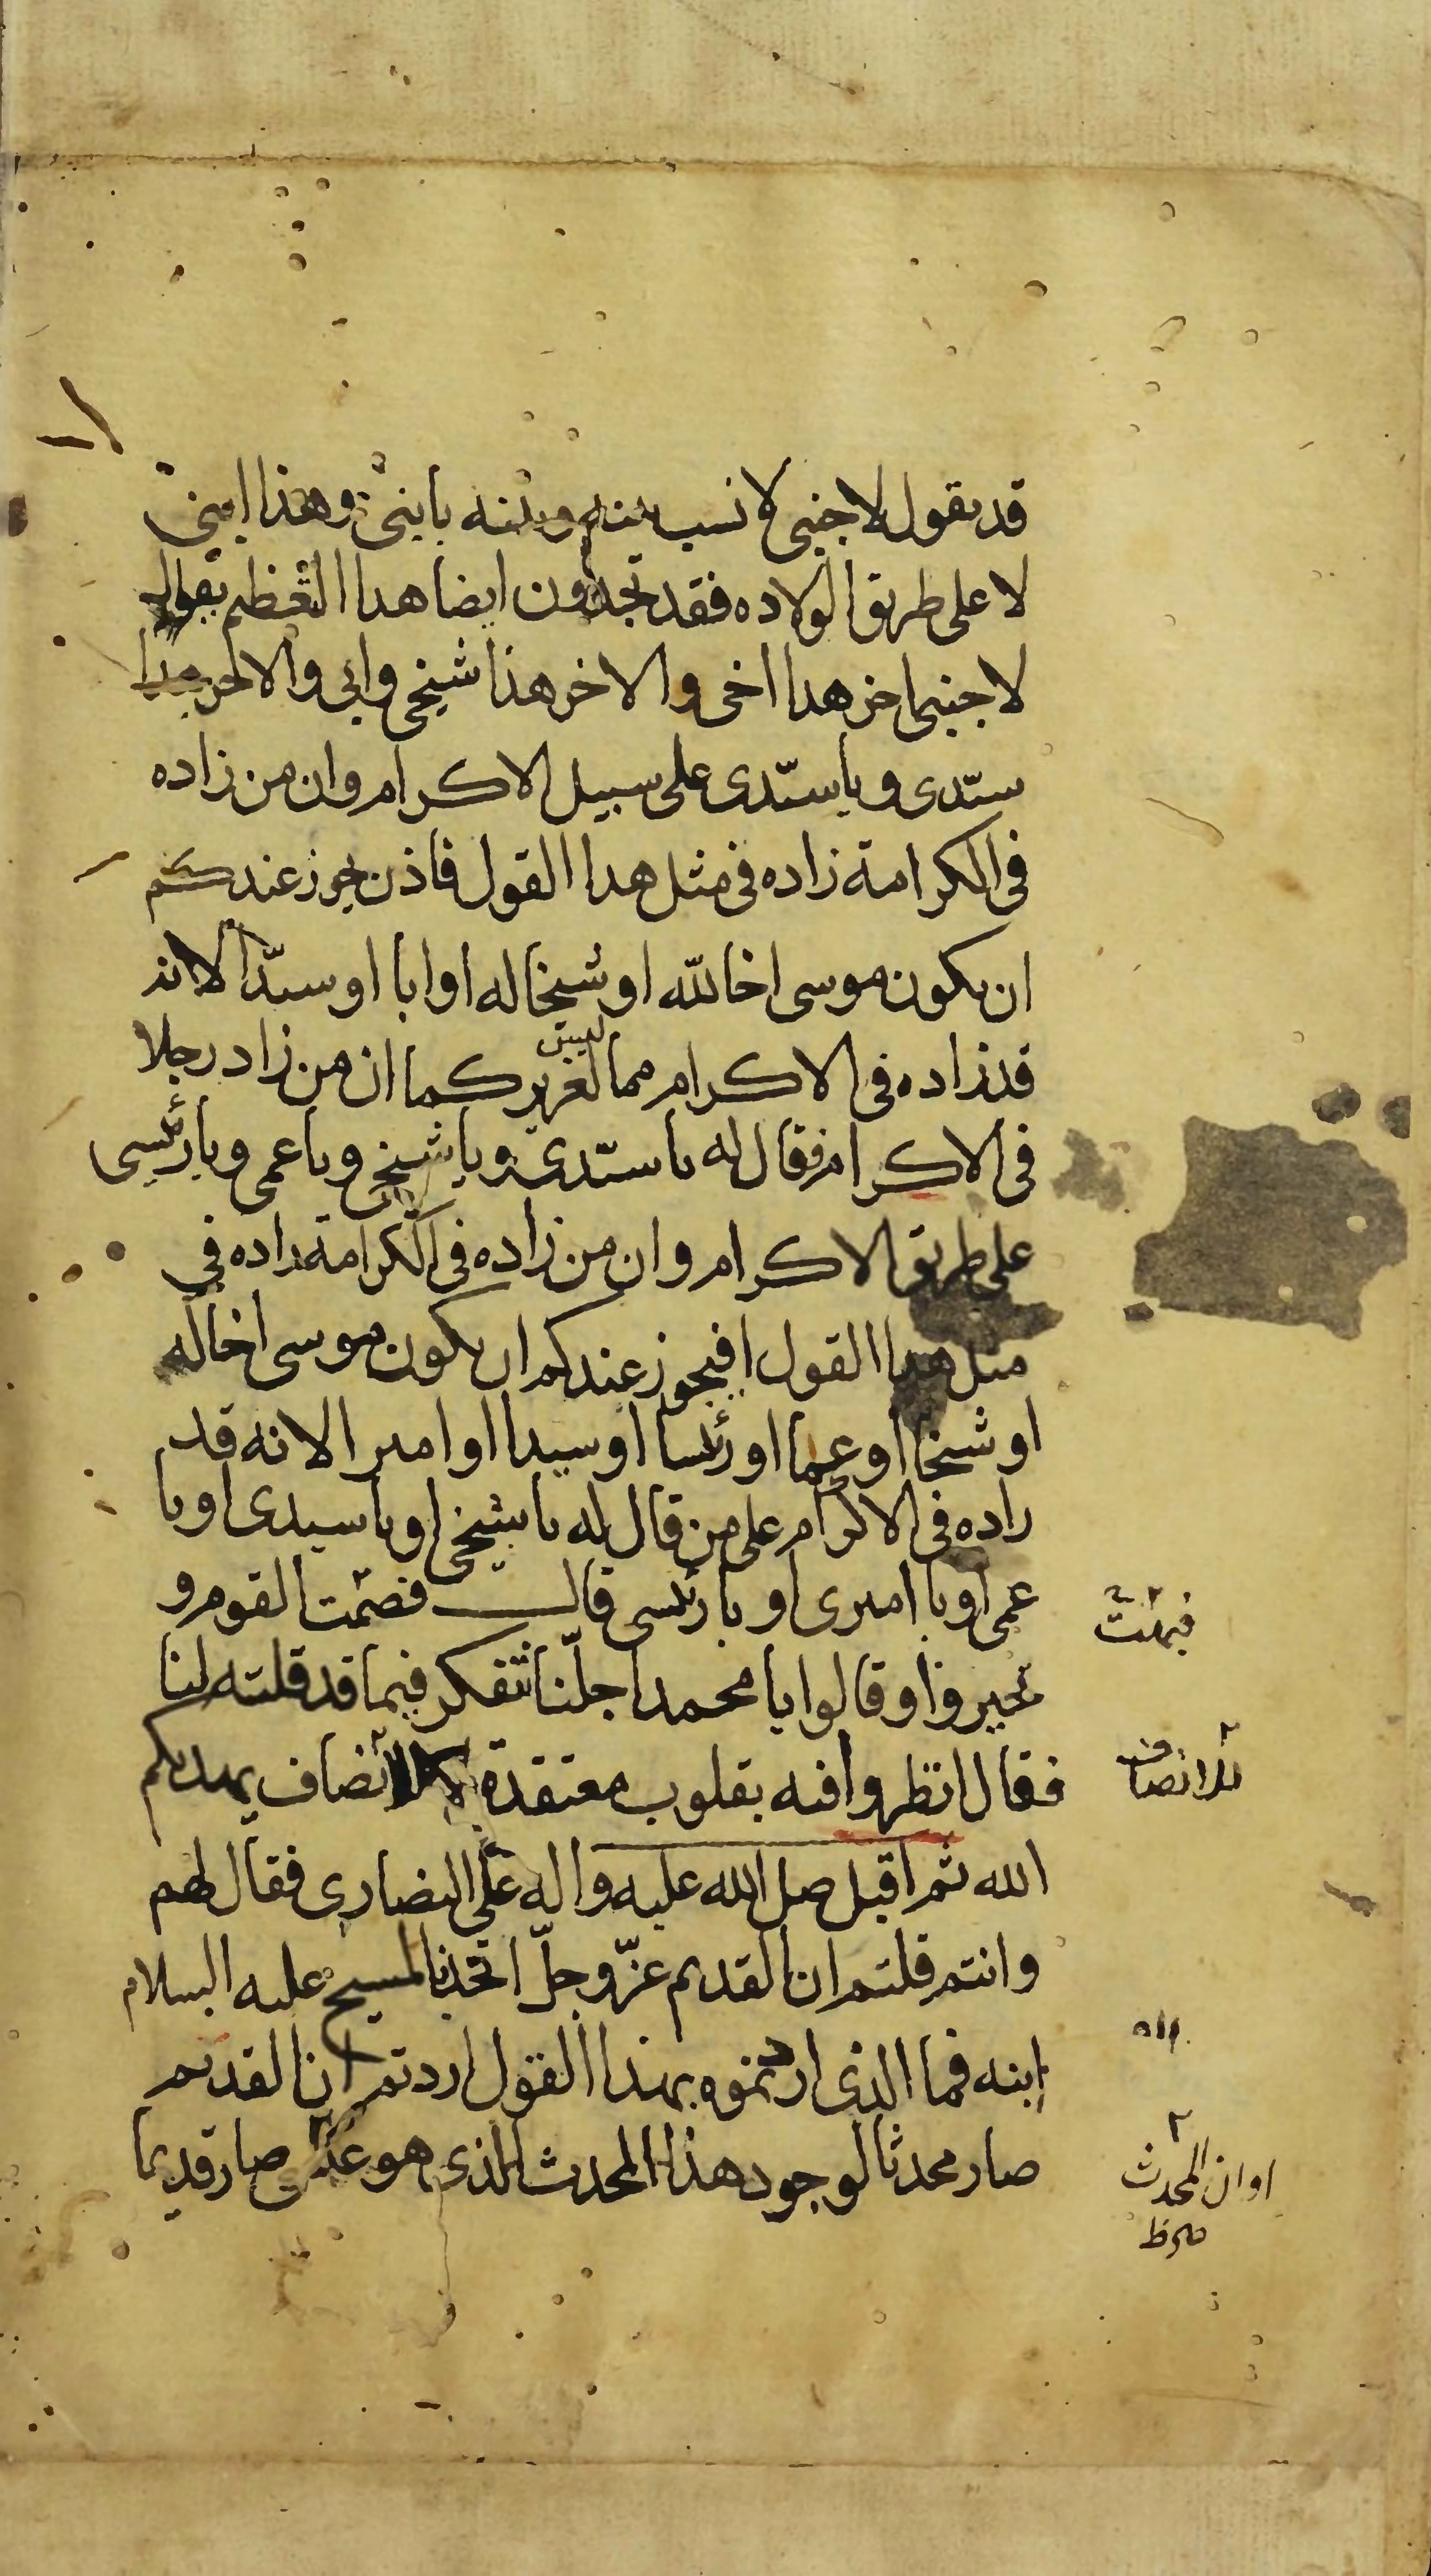 قد يقول لاجنبى لا نسب بينه وبينه يابنى وهذا ابنى
لا على طريق الولاده فقد تجدون ايضا هذا التعظيم يقول
لاجنبى اخر هدا اخى والاخر هذا شيخى وابى والاخر هذا
سيّدى ويا سيّدى على سبيل الاكرام وان من زاده
فى الكرامة زاده فى مثل هدا القول فاذن يجوز عندكم
ان يكون موسى اخا لله او شيخا له او ابا او سيّدا لانه
قد زاده فى الاكرام مما لعزير كما ان من زاد رجلا
فى الاكرام فقال له يا سيّدى ويا شيخى ويا عمى ويا رئيسى
على طريق الاكرام وان من زاده فى الكرامة زاده فى
مثل هدا القول افيجوز عندكم ان يكون موسى اخا لله
او شيخا او عما او رئيسا او سيدا او اميرا لانه قد
زاده فى الاكرام على من قال له يا شيخى او يا سيدى او يا
عمى او يا اميرى او يا رئيسى قال فصمت القوم و
تحيروا وقالوا يا محمد اجلّنا نتفكر فيما قد قلته لنا
فقال انظروا فيه بقلوب معتقدة للانصاف يهديكم
الله ثم اقبل صل الله عليه واله على النصارى فقال لهم
وانتم قلتم ان القديم عزّ وجلّ اتحد بالمسيح عليه السلام
ابنه فما الذى اردتموه بهذا القول اردتم ان القديم
صار محدثا لوجود هذا المحدث الذى هو عيسى صار قديما
فبهتت
للانصاف
او ان المحدث